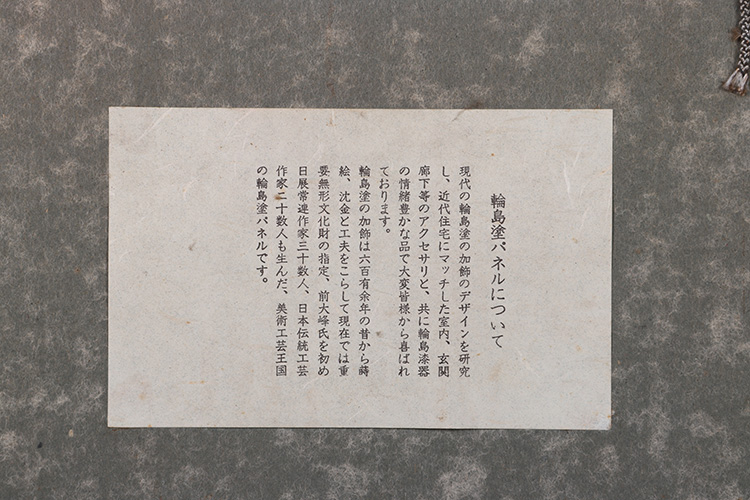 輪島塗パネルについて
現代の輪島塗の加飾のデザインを研究
し、近代住宅にマッチした室内、玄関
廊下等のアクセサリと、共に輪島漆器
の情緒豊かな品で大変皆様から喜ばれ
ております。
輪島塗の加飾は六百有余年の昔から蒔
絵、沈金と工夫をこらして現在では重
要無形文化財の指定、前大峰氏を初め
日展常連作家三十数人、日本伝統工芸
作家二十数人も生んだ、美術工芸王国
の輪島塗パネルです。